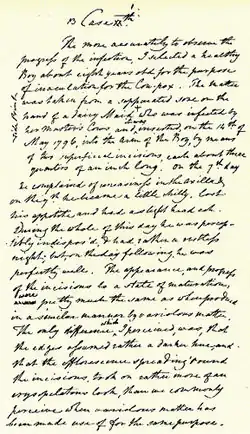 13 Case
The more accurately to observe the
progress of the infection, I selected a healthy
Boy about eight years old for the purpose
of inoculation for the Cow pox. The matter
was taken from a suppurated sore on the
hand of a dairy Maid + who was infected by
her Masters Cows and inserted, on the 14th of
May 1796, into the arm of the Boy, by means
of two superficial incisions, each about three
quarters of an inch long. On the 7th day
he complained of uneasiness in the axilla &
on the 9th he became a little chilly, lost
his appetite and had a slight head ach.
During the whole of this day he was percep-
tibly indispos'd, & had rather a restless
night; but, on the day following, he was
perfectly well. The appearance, and progress
of the incisions to a state of maturation,
were pretty much the same as when produced
in a similar manner by variolous matter.
The only difference which I perceived was, that
the edges assumed rather a darker hue, and
that the efflorescence spreading round
the incisions, took on rather more of an
erysipelatous look, than we commonly
perceive when variolous matter has
been made use of for the same purpose.